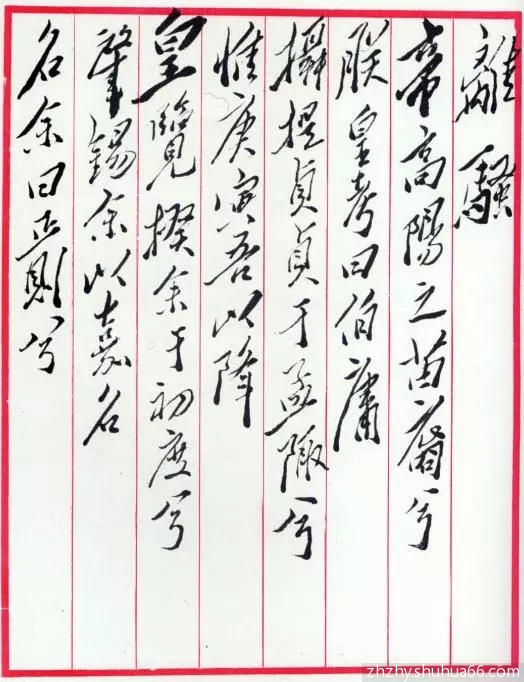 離騷
帝高陽之苗裔兮
朕皇考曰伯庸
攝提貞貞于孟陬兮
惟庚寅吾以降
皇覽揆余于初度兮
肇錫余以嘉名
名余曰正則兮
zhzhyshuhua66.com